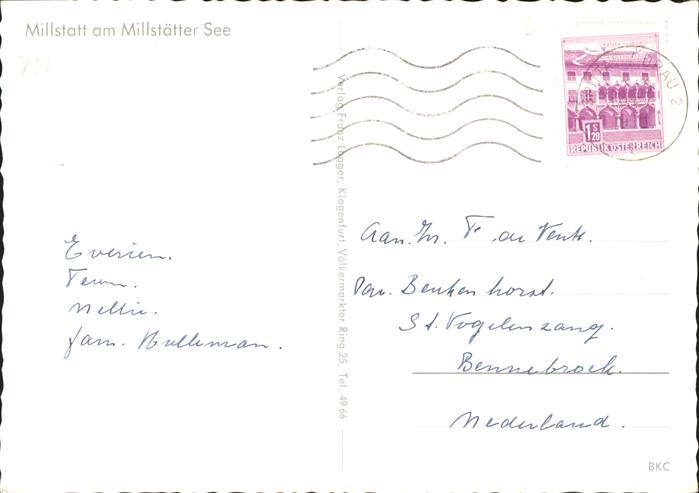 Millstatt am Millstätter See
Verlag Franz Lagger, Klagenfurt, Völkermarkter Ring 25, Tel. 49 66
S
1.20
REPUBLIK ÖSTERREICH
DRAU 2
Everien.
Teun.
Nellie.
fam. Hulleman.
Aan. Hr. T. de Vente.
Pav. Benkenhorst.
St. Vogelenzang.
Bennebroek.
Nederland.
BKC